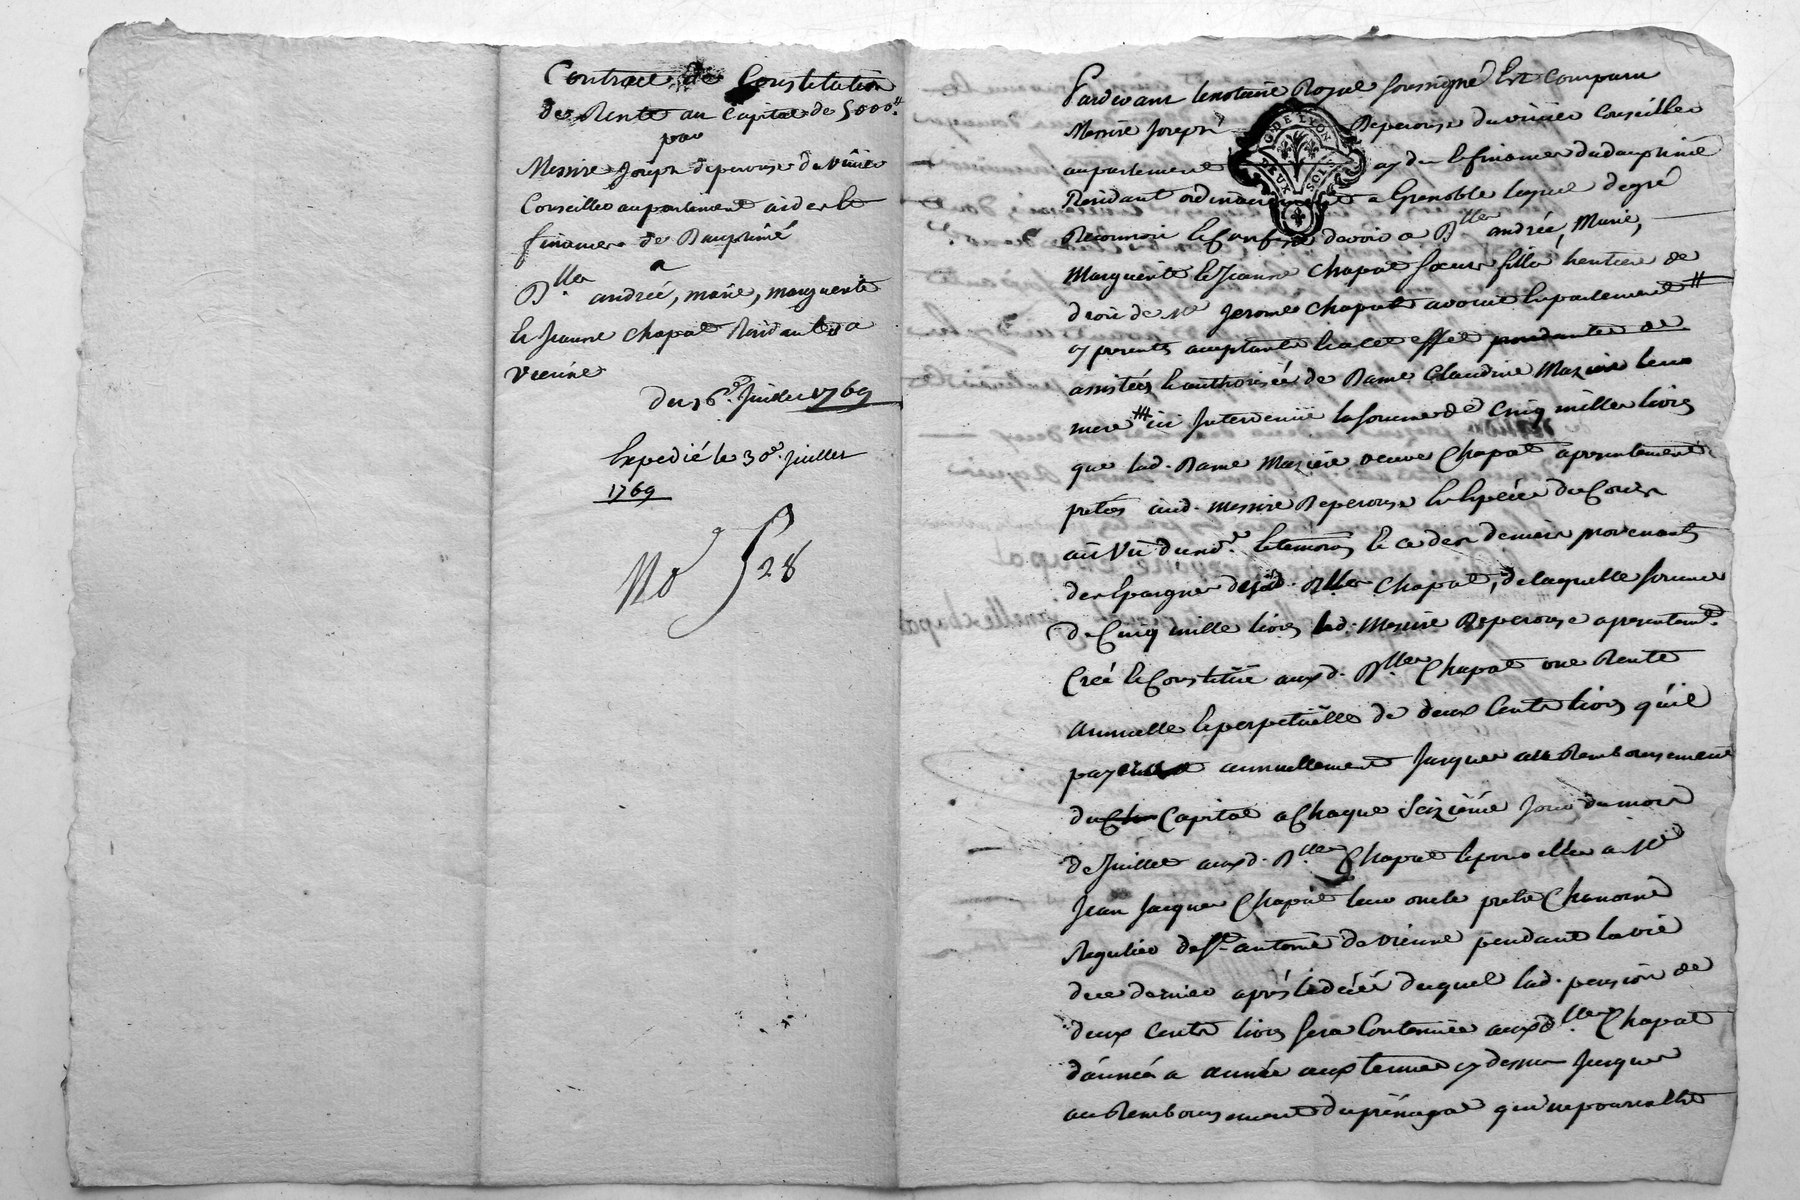 Contract de Constitution
de Rente au Capital de 5000ᵗᵗ.
par
Messire Joseph deperouse du vivier
Conseiller au parlement aides et
finances de Dauphiné
a
Dlles andrée, marie, marguerite
et Jeanne Chapat Residantes a
vienne
du 16e. Juillet 1769
Expedié le 30e. Juillet
1769
No 528
Pardevant le notaire Royal soussigné Est comparu
Messire Joseph Deperouse du vivier Conseiller
au parlement aydes et finances du dauphiné
Residant ordinairement a Grenoble lequel de gré
Reconnoit et Confesse devoir a Dlles andrée, Marie,
Marguerite et Jeanne Chapat soeurs filles heritieres de
droit de Me Jerome Chapat avocat En parlement #
cy presentes acceptantes et a cet effet procedantes de
assistées et authorisées de Dame Claudine Maziere leur
mere # ici Intervenüe la somme de Cinq mille livres
que lad. Dame Maziere veuve Chapat a presentement
pretés aud. Messire Deperouse En Espéces du Cours
au Vu du nore. et temoins et ce des deniers provenants
des Epargnes desd. Dlles Chapat, de laquelle somme
de Cinq mille livres led. Messire Deperouse a presentemt.
Créé et Constitüé auxd. Dlles Chapat une Rente
annuelle et perpetüelle de deux Cents livres qu'il
payera annuellement Jusques au Remboursement
du Capital a Chaque Seizième Jour du mois
de Juillet auxd. Dlles Chapat et pour elles a Me
Jean Jacques Chapat leur oncle pretre Chanoine
Regulier de St. antoine de vienne pendant la vie
de ce dernier après le décés duquel lad. pension de
deux cents livres sera Continuée auxd. Dlles Chapat
d'année a année aux termes cy dessus Jusques
au Remboursement du prinsipal qui ne pourra Etre
G. DE LYON
DEUX SOLS